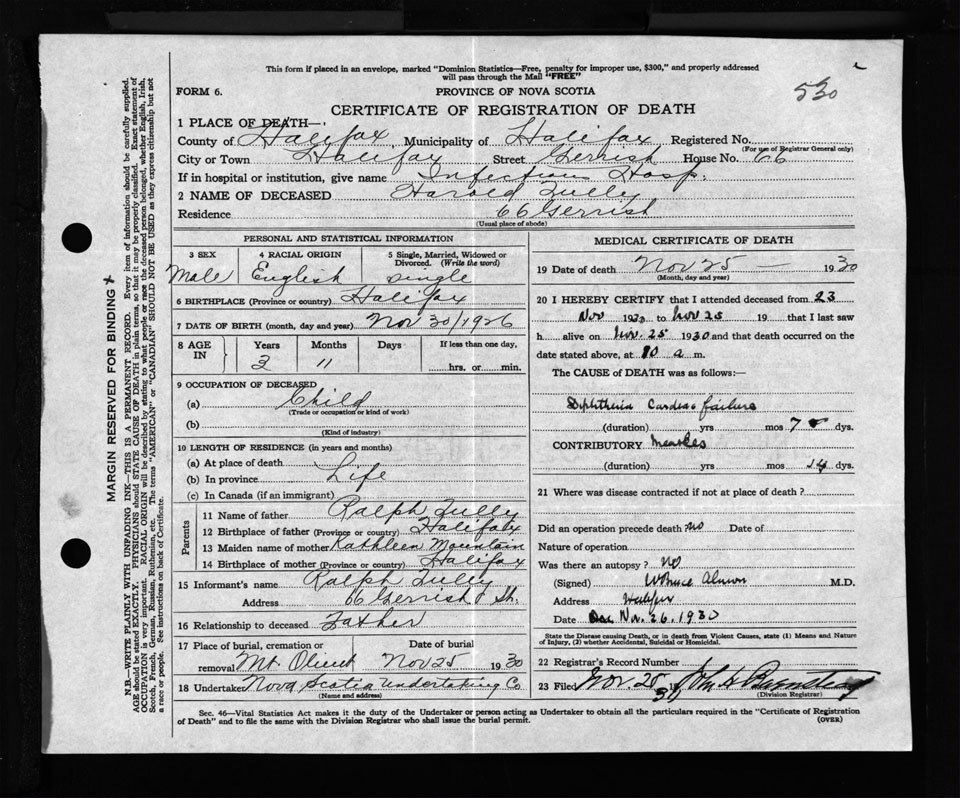 This form if placed in an envelope, marked "Dominion Statistics—Free, penalty for improper use, $300," and properly addressed
will pass through the Mail "FREE"
530
FORM 6.
PROVINCE OF NOVA SCOTIA
CERTIFICATE OF REGISTRATION OF DEATH
1 PLACE OF DEATH—
County of Halifax, Municipality of Halifax Registered No.
(For use of Registrar General only)
City or Town Halifax Street Gerrish House No. 66
If in hospital or institution, give name Infectious Hosp.
2 NAME OF DECEASED Harold
Residence 66 Gerrish
(Usual place of abode)
PERSONAL AND STATISTICAL INFORMATION
3 SEX 4 RACIAL ORIGIN 5 Single, Married, Widowed or Divorced. (Write the word)
Male English single
6 BIRTHPLACE (Province or country) Halifax
7 DATE OF BIRTH (month, day and year) Nov 30/1926
8 AGE IN Years Months Days If less than one day,
3 11 hrs. or min.
9 OCCUPATION OF DECEASED
(a) Child
(Trade or occupation or kind of work)
(b)
(Kind of industry)
10 LENGTH OF RESIDENCE (in years and months)
(a) At place of death
(b) In province Life
(c) In Canada (if an immigrant)
Parents
11 Name of father Ralph
12 Birthplace of father (Province or country) Halifax
13 Maiden name of mother Kathleen Mountain
14 Birthplace of mother (Province or country) Halifax
15 Informant's name Ralph
Address 66 Gerrish St.
16 Relationship to deceased Father
17 Place of burial, cremation or removal Date of burial
Mt Olivet Nov 25 1930
18 Undertaker Nova Scotia Undertaking Co
(Name and address)
MEDICAL CERTIFICATE OF DEATH
19 Date of death Nov 25 — 1930
(Month, day and year)
20 I HEREBY CERTIFY that I attended deceased from 23
Nov 1930 to Nov 25 19 that I last saw
h alive on Nov. 25 1930 and that death occurred on the
date stated above, at 10 a m.
The CAUSE of DEATH was as follows:—
Diphtheria Cardiac failure
(duration) yrs mos 7 dys.
CONTRIBUTORY Measles
(duration) yrs mos 14 dys.
21 Where was disease contracted if not at place of death?
Did an operation precede death no Date of
Nature of operation
Was there an autopsy? No
(Signed) M.D.
Address Halifax
Date Nov. 26. 1930
State the Disease causing Death, or in death from Violent Causes, state (1) Means and Nature
of Injury, (2) whether Accidental, Suicidal or Homicidal.
22 Registrar's Record Number
23 Filed Nov. 25
(Division Registrar)
Sec. 46—Vital Statistics Act makes it the duty of the Undertaker or person acting as Undertaker to obtain all the particulars required in the "Certificate of Registration
of Death" and to file the same with the Division Registrar who shall issue the burial permit.
(OVER)
MARGIN RESERVED FOR BINDING
N.B.—WRITE PLAINLY WITH UNFADING INK—THIS IS A PERMANENT RECORD. Every item of information should be carefully supplied.
AGE should be stated EXACTLY. PHYSICIANS should STATE CAUSE OF DEATH in plain terms, so that it may be properly classified. Exact statement of
OCCUPATION is very important. RACIAL ORIGIN will be described by stating to what people or race the deceased person belonged, whether English, Irish,
Scotch, French, German, Russian, Ruthenian, etc. The terms "AMERICAN" or "CANADIAN" SHOULD NOT BE USED as they express citizenship but not
a race or people. See instructions on back of Certificate.